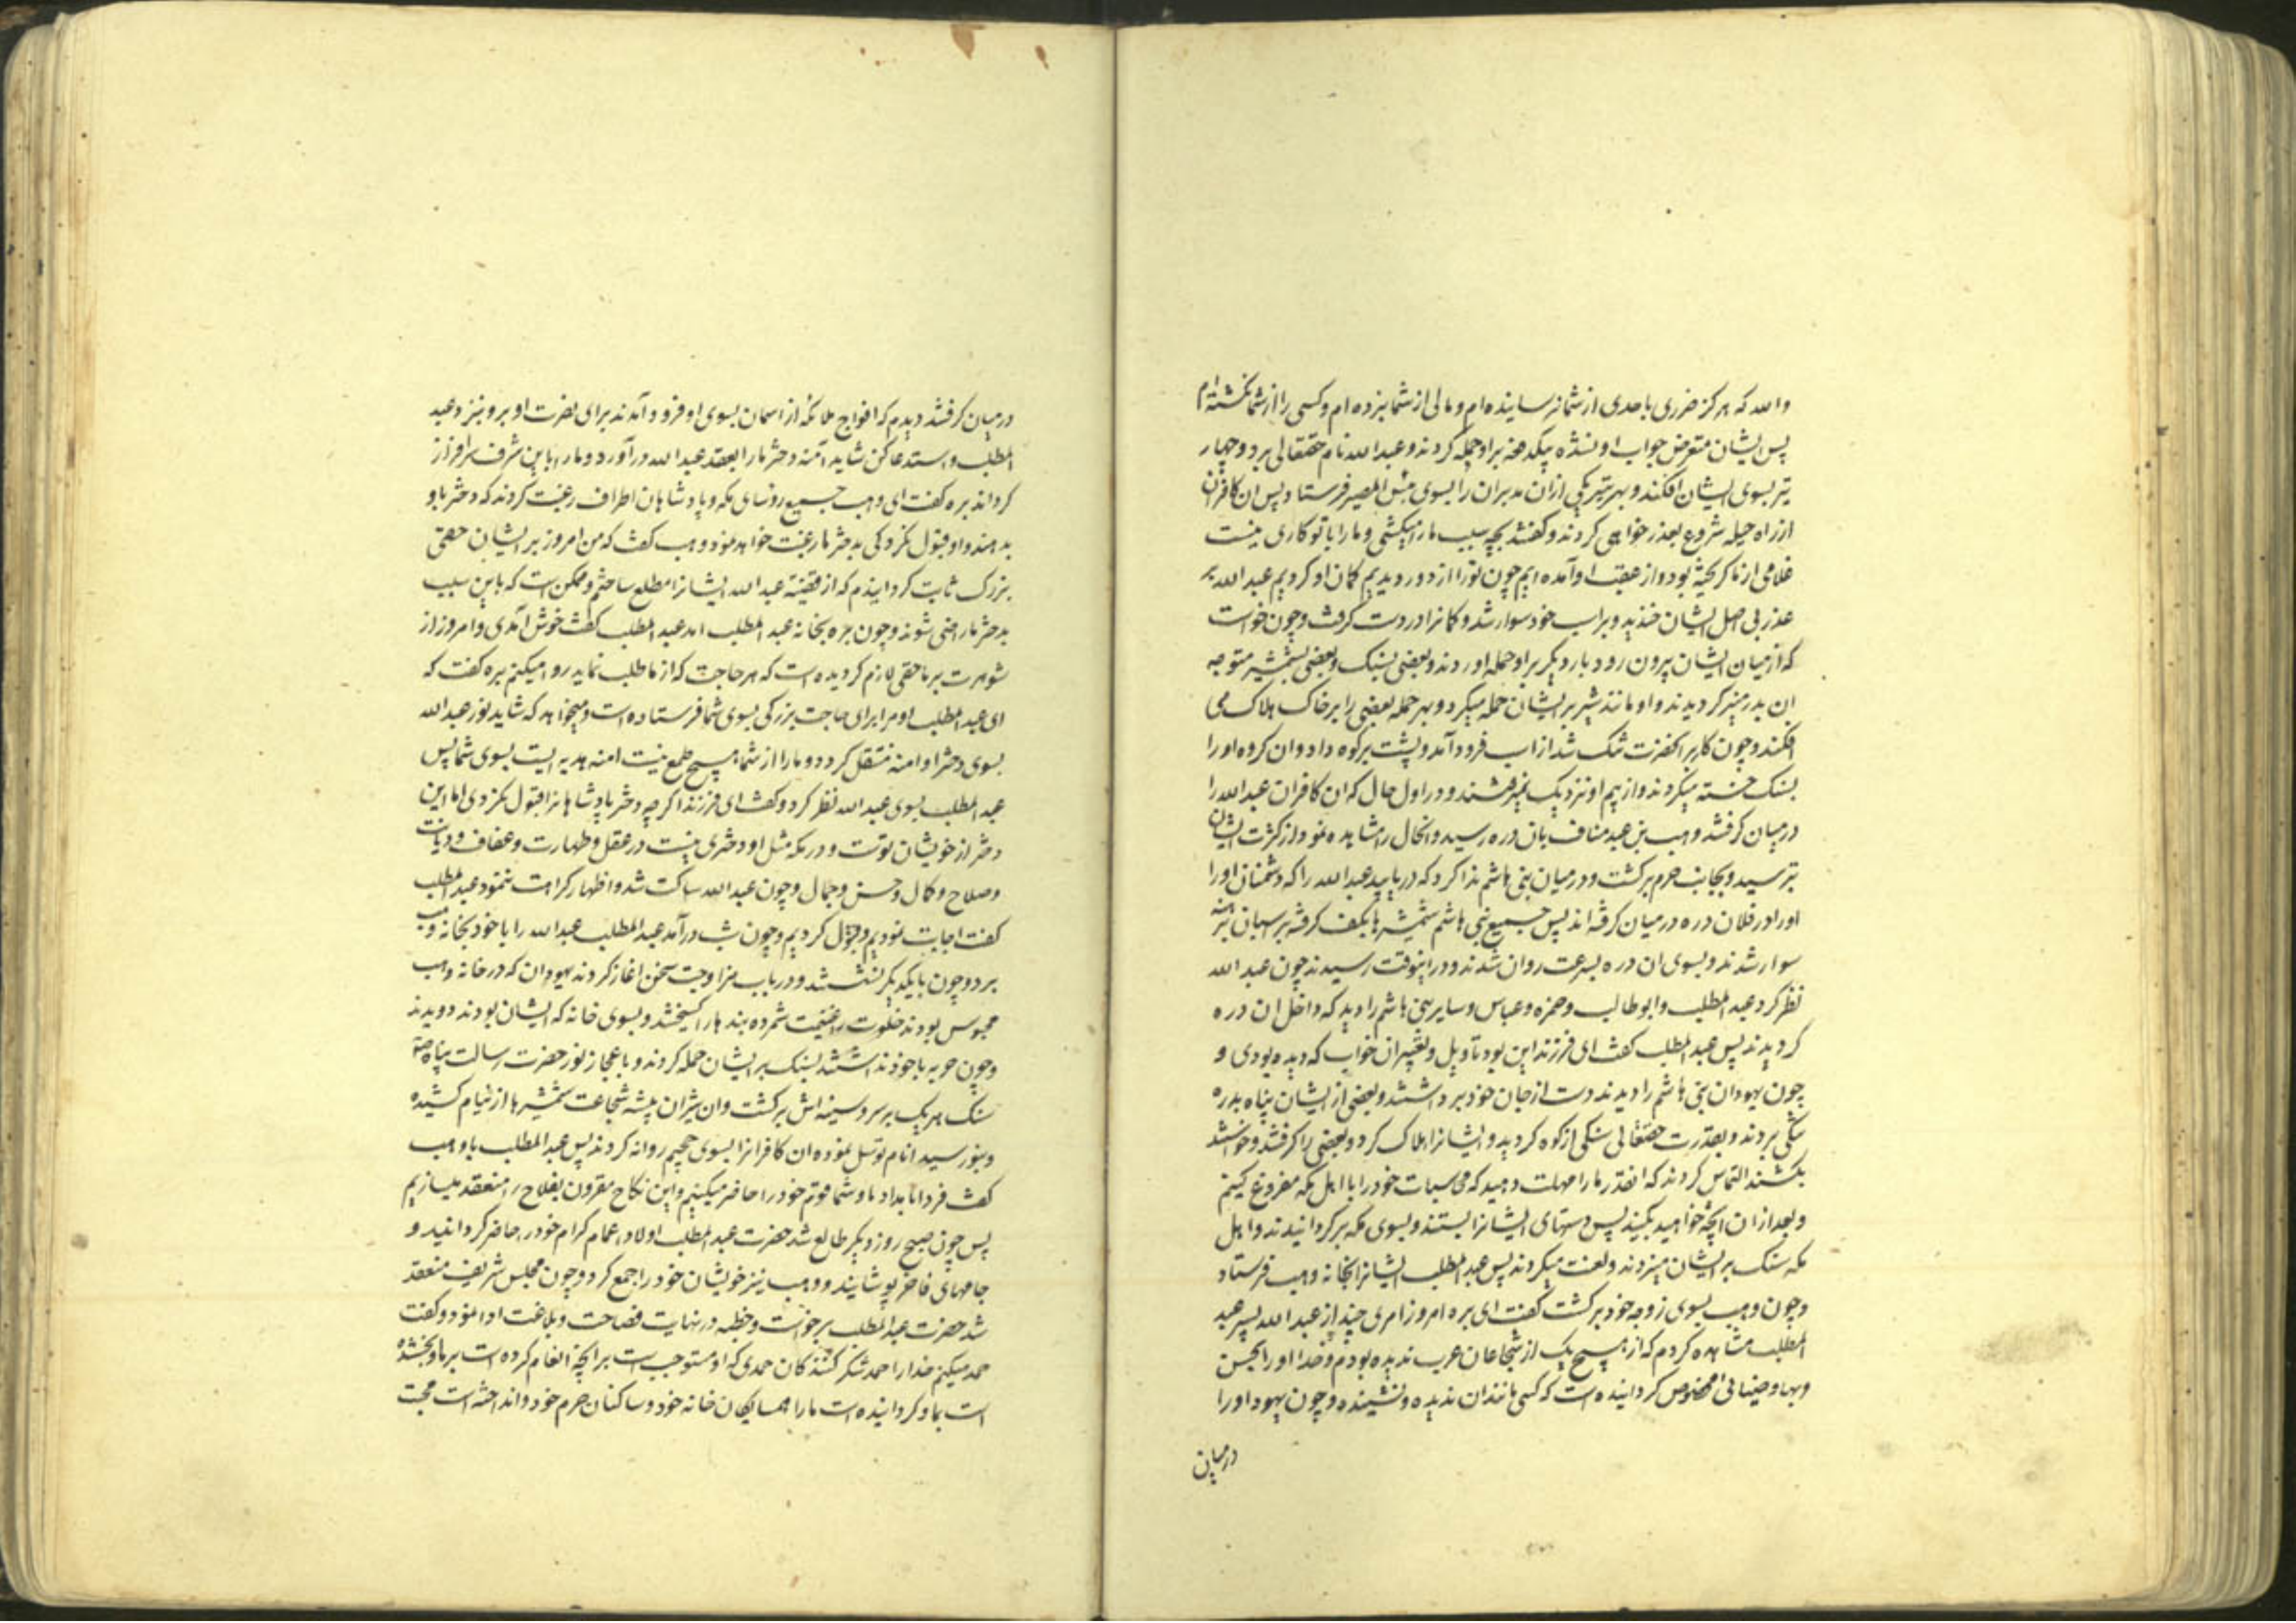 والله که هرگز ضرری باحدی از شما نرسانیده‌ام و مالی از شما نبرده‌ام و کسی را از شما نکشته‌ام
پس ایشان متعرض جواب او نشده بیکدفعه براو حمله کردند و عبدالله نام حقتعالی برد و چهار
تیر بسوی ایشان افکند و بهر تیر یکی از ان مدبران را بسوی بئس المصیر فرستاد پس ان کافران
از راه حیله شروع بعذر خواهی کردند و کفتند بچه سبب ما را میکشی و ما را با تو کاری نیست
غلامی از ما کریخته بود و از عقب او آمده ایم چون تو را از دور دیدیم کمان او کردیم عبدالله بر
عذر بی اصل ایشان خندید و بر اسب خود سوار شد و کمانرا در دست کرفت و چون خواست
که از میان ایشان بیرون رود بار دیگر براو حمله اوردند و بعضی بسنک و بعضی بشمشیر متوجه
ان بدر منیر کردیدند و او مانند شیر بر ایشان حمله میکرد و بهر حمله بعضی را بر خاک هلاک می
افکند و چون کار بر انحضرت تنک شد از اسب فرود آمد و پشت بر کوه داد و ان کروه او را
بسنک خسته میکردند و از بیم او نزدیک نمیرفتند و در اول حال که ان کافران عبدالله را
در میان کرفتند وهب بن عبد مناف بان دره رسید و انحال را مشاهده نمود و از کثرت ایشان
بترسید و بجانب حرم برکشت و در میان بنی هاشم ندا کرد که دریابید عبدالله را که دشمنان او را
او را در فلان دره در میان کرفته اند پس جمیع بنی هاشم شمشیرها بکف کرفته بر اسبان برهنه
سوار شدند و بسوی ان دره بسرعت روان شدند و در اینوقت رسیدند چون عبدالله
نظر کرد عبدالمطلب و ابوطالب و حمزه و عباس و سایر بنی هاشم را دید که داخل ان دره
کردیدند پس عبدالمطلب کفت ای فرزند این بود تاویل و تعبیر ان خواب که دیده بودی و
چون یهودان بنی هاشم را دیدند دست از جان خود برداشتند و بعضی از ایشان پناه بدره
تنکی بردند و بقدرت حقتعالی سنکی از کوه کردید و ایشانرا هلاک کرد و بعضی را کرفتند و خواستند
بکشند التماس کردند که انقدر ما را مهلت دهید که محاسبات خود را با اهل مکه مفروغ کنیم
و بعد از ان انچه خواهید بکنید پس دستهای ایشانرا بستند و بسوی مکه برکردانیدند و اهل
مکه سنک بر ایشان میزدند و لعنت میکردند پس عبدالمطلب ایشانرا بخانه وهب فرستاد
و چون وهب بسوی زوجه خود برکشت کفت ای بره امروز امری چند از عبدالله پسر عبد
المطلب مشاهده کردم که از هیچ یک از شجاعان عرب ندیده بودم و خدا او را بحسن
و بهاء و ضیائی مخصوص کردانیده است که کسی مانند ان ندیده و نشنیده و چون یهود او را
در میان
در میان کرفتند دیدم که افواج ملائکه از اسمان بسوی او فرود آمدند برای نصرت او برو بنزد عبد
المطلب و استدعا کن شاید آمنه دختر ما را بعقد عبدالله درآورد و ما را باین شرف سرافراز
کرداند بره کفت ای وهب جمیع رؤسای مکه و پادشاهان اطراف رغبت کردند که دختر باو
بدهند و او قبول نکرد کی بدختر ما رغبت خواهد نمود وهب کفت که من امروز بر ایشان حقی
بزرک ثابت کردانیدم که از قضیه عبدالله ایشانرا مطلع ساختم و ممکن است که باین سبب
بدختر ما راضی شوند و چون بره بخانه عبدالمطلب امد عبدالمطلب کفت خوش آمدی و امروز از
شوهرت بر ما حقی لازم کردیده است که هر حاجت که از ما طلب نماید روا میکنیم بره کفت که
ای عبدالمطلب او مرا برای حاجت بزرکی بسوی شما فرستاده است و میخواهد که شاید نور عبدالله
بسوی دختر او امنه منتقل کردد و ما را از شما هیچ طمع نیست امنه هدیه ایست بسوی شما پس
عبدالمطلب بسوی عبدالله نظر کرد و کفت ای فرزند اکر چه دختر پادشاهانرا قبول نکردی اما این
دختر از خویشان توست و در مکه مثل او دختری نیست در عقل و طهارت و عفاف و دیانت
و صلاح و کمال و حسن و جمال و چون عبدالله ساکت شد و اظهار کراهت ننمود عبدالمطلب
کفت اجابت نمودیم و قبول کردیم و چون شب درآمد عبدالمطلب عبدالله را با خود بخانه وهب
برد و چون با یکدیکر نشستند و در باب مزاوجت سخن اغاز کردند یهودان که در خانه وهب
محبوس بودند خلوت را غنیمت شمرده بندها را کسیختند و بسوی خانه که ایشان بودند دویدند
و چون حربه با خود نداشتند بسنک بر ایشان حمله کردند و باعجاز نور حضرت رسالت پناه
سنک هر یک بر سر و سینه اش برکشت و ان شیران بیشه شجاعت شمشیرها از نیام کشیده
و بنور سید انام توسل نموده ان کافرانرا بسوی جحیم روانه کردند پس عبدالمطلب با وهب
کفت فردا بامداد ما و شما قوم خود را حاضر میکنیم و این نکاح مقرون بفلاح را منعقد میسازیم
پس چون صبح روز دیکر طالع شد حضرت عبدالمطلب اولاد و اعمام کرام خود را حاضر کردانید و
جامهای فاخر پوشانید و وهب نیز خویشان خود را جمع کرد و چون مجلس شریف منعقد
شد حضرت عبدالمطلب برخواست و خطبه در نهایت فصاحت و بلاغت ادا نمود و کفت
حمد میکنم خدا را حمد شکر کنندکان حمدی که او مستوجب است بر انچه انعام کرده است بر ما و بخشیده
است بما و کردانیده است ما را همسایکان خانه خود و ساکنان حرم خود و انداخته است محبت